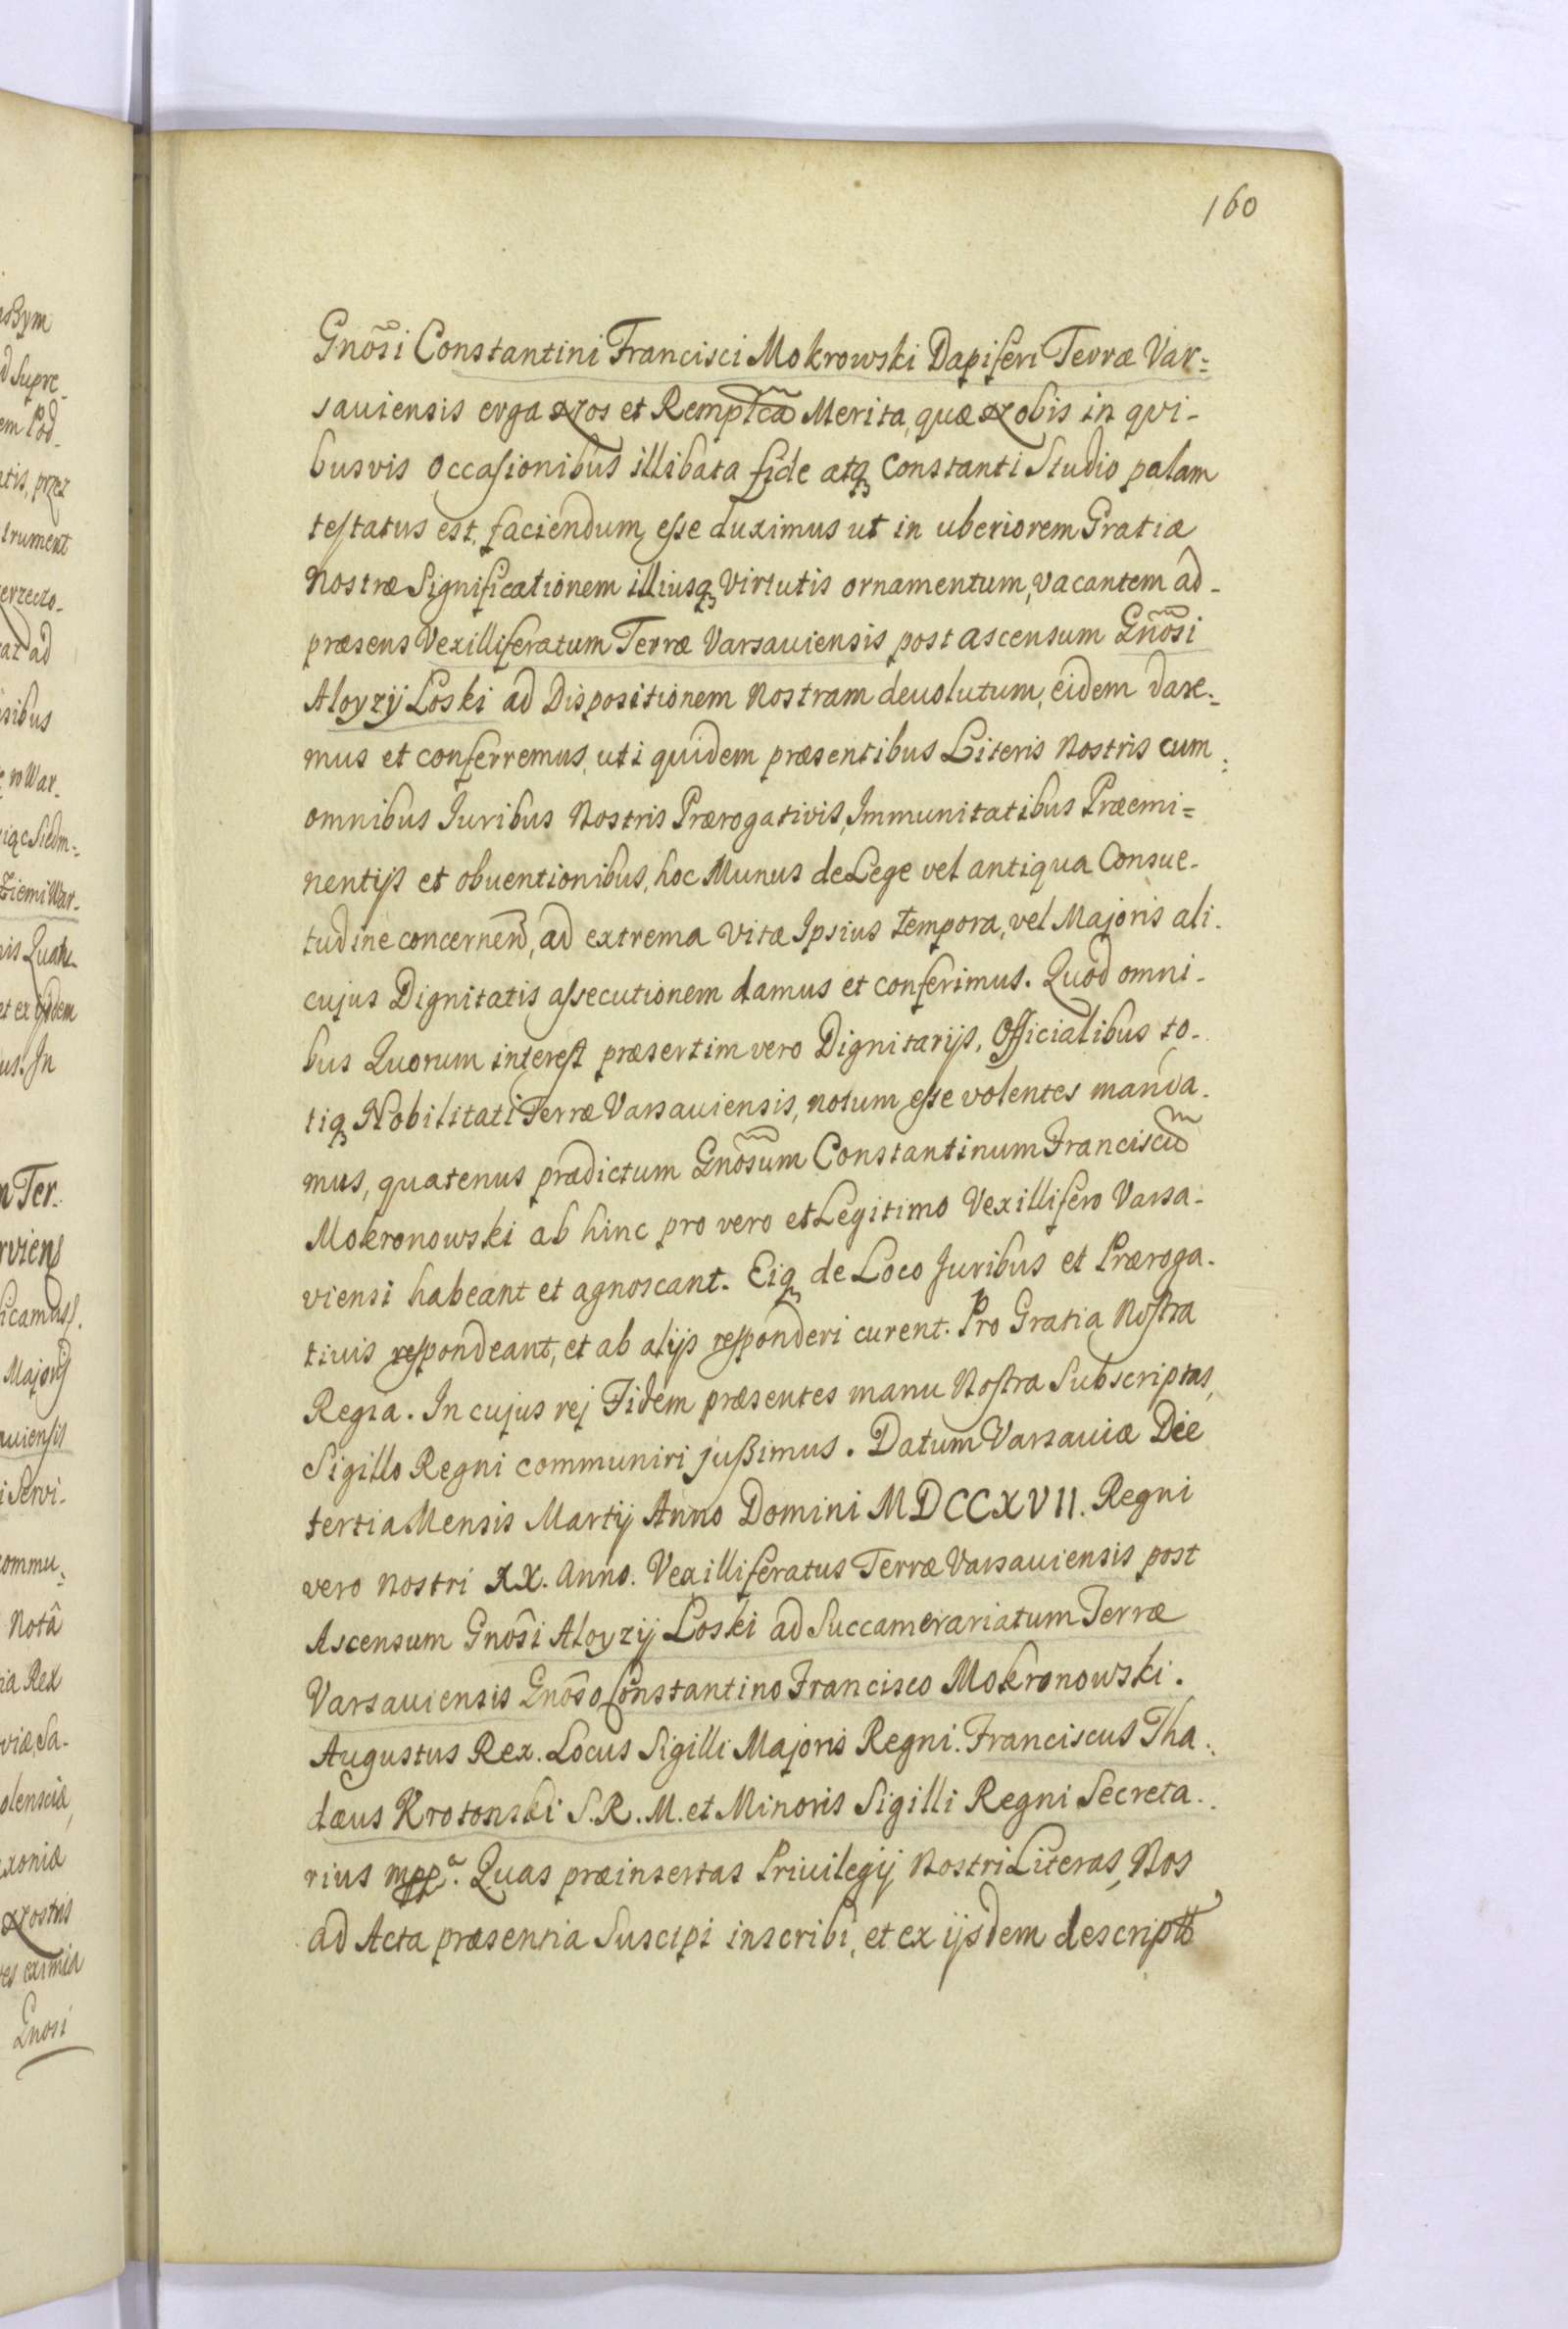 160
Gnõsi Constantini Francisci Mokrowski Dapiferi Terræ Var=
saviensis erga Nos et Remplcã Merita, quæ Nobis in qvi-
busvis occasionibus illibata fide atq constanti Studio palam
testatus est, faciendum esse duximus ut in uberiorem Gratiæ
Nostræ Significationem illiusq virtutis ornamentum, vacantem ad-
præsens Vexilliferatum Terræ Varsauiensis post ascensum Gnõsi
Aloyzij Loski ad Dispositionem Nostram deuolutum, eidem dare-
mus et conferremus, uti quidem præsentibus Literis Nostris cum
omnibus Juribus Nostris Prærogativis, Immunitatibus Præemi=
nentijs et obuentionibus, hoc Munus de Lege vel antiqua Consue-
tudine concernen̄, ad extrema vitæ Ipsius tempora, vel Majoris ali-
cujus Dignitatis assecutionem damus et conferimus. Quod omni-
bus Quorum interest præsertim vero Dignitarijs, Officialibus to-
tiq Nobilitati Terræ Varsauiensis, notum esse volentes manda-
mus, quatenus prædictum Gnõsum Constantinum Franciscũ
Mokronowski ab hinc pro vero et Legitimo Vexillifero Varsa-
viensi habeant et agnoscant. Eiq de Loco Juribus et Præroga-
tiuis respondeant, et ab alijs responderi curent. Pro Gratia Nostra
Regia. In cujus rej Fidem præsentes manu Nostra Subscriptas,
Sigillo Regni communiri jussimus. Datum Varsauiæ Die
tertia Mensis Martij Anno Domini MDCCXVII. Regni
vero nostri XX. Anno. Vexilliferatus Terræ Varsauiensis post
Ascensum Gnõsi Aloyzij Loski ad Succamerariatum Terræ
Varsauiensis Gnõso Constantino Francisco Mokronowski.
Augustus Rex. Locus Sigilli Majoris Regni. Franciscus Tha-
dæus Krotonski S.R.M. et Minoris Sigilli Regni Secreta-
rius mppa. Quas præinsertas Privilegij Nostri Literas, Nos
ad Acta præsentia Suscipi inscribi, et ex ijsdem descriptũ